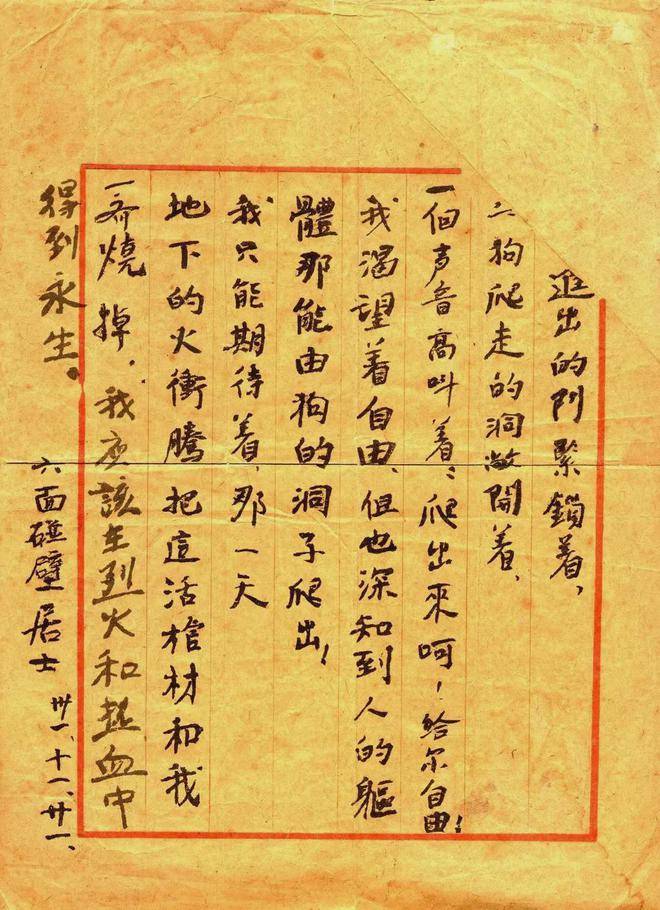 進出的門緊鎖着,
狗爬走的洞敞開着,
一個声音高叫着:爬出來呵!給尔自由!
我渴望着自由,但也深知到人的軀
體那能由狗的洞子爬出!
我只能期待着,那一天
地下的火衝騰,把這活棺材和我
一齊燒掉,我应該在烈火和热血中
得到永生。
六面碰壁居士
卅一、十一、廿一、